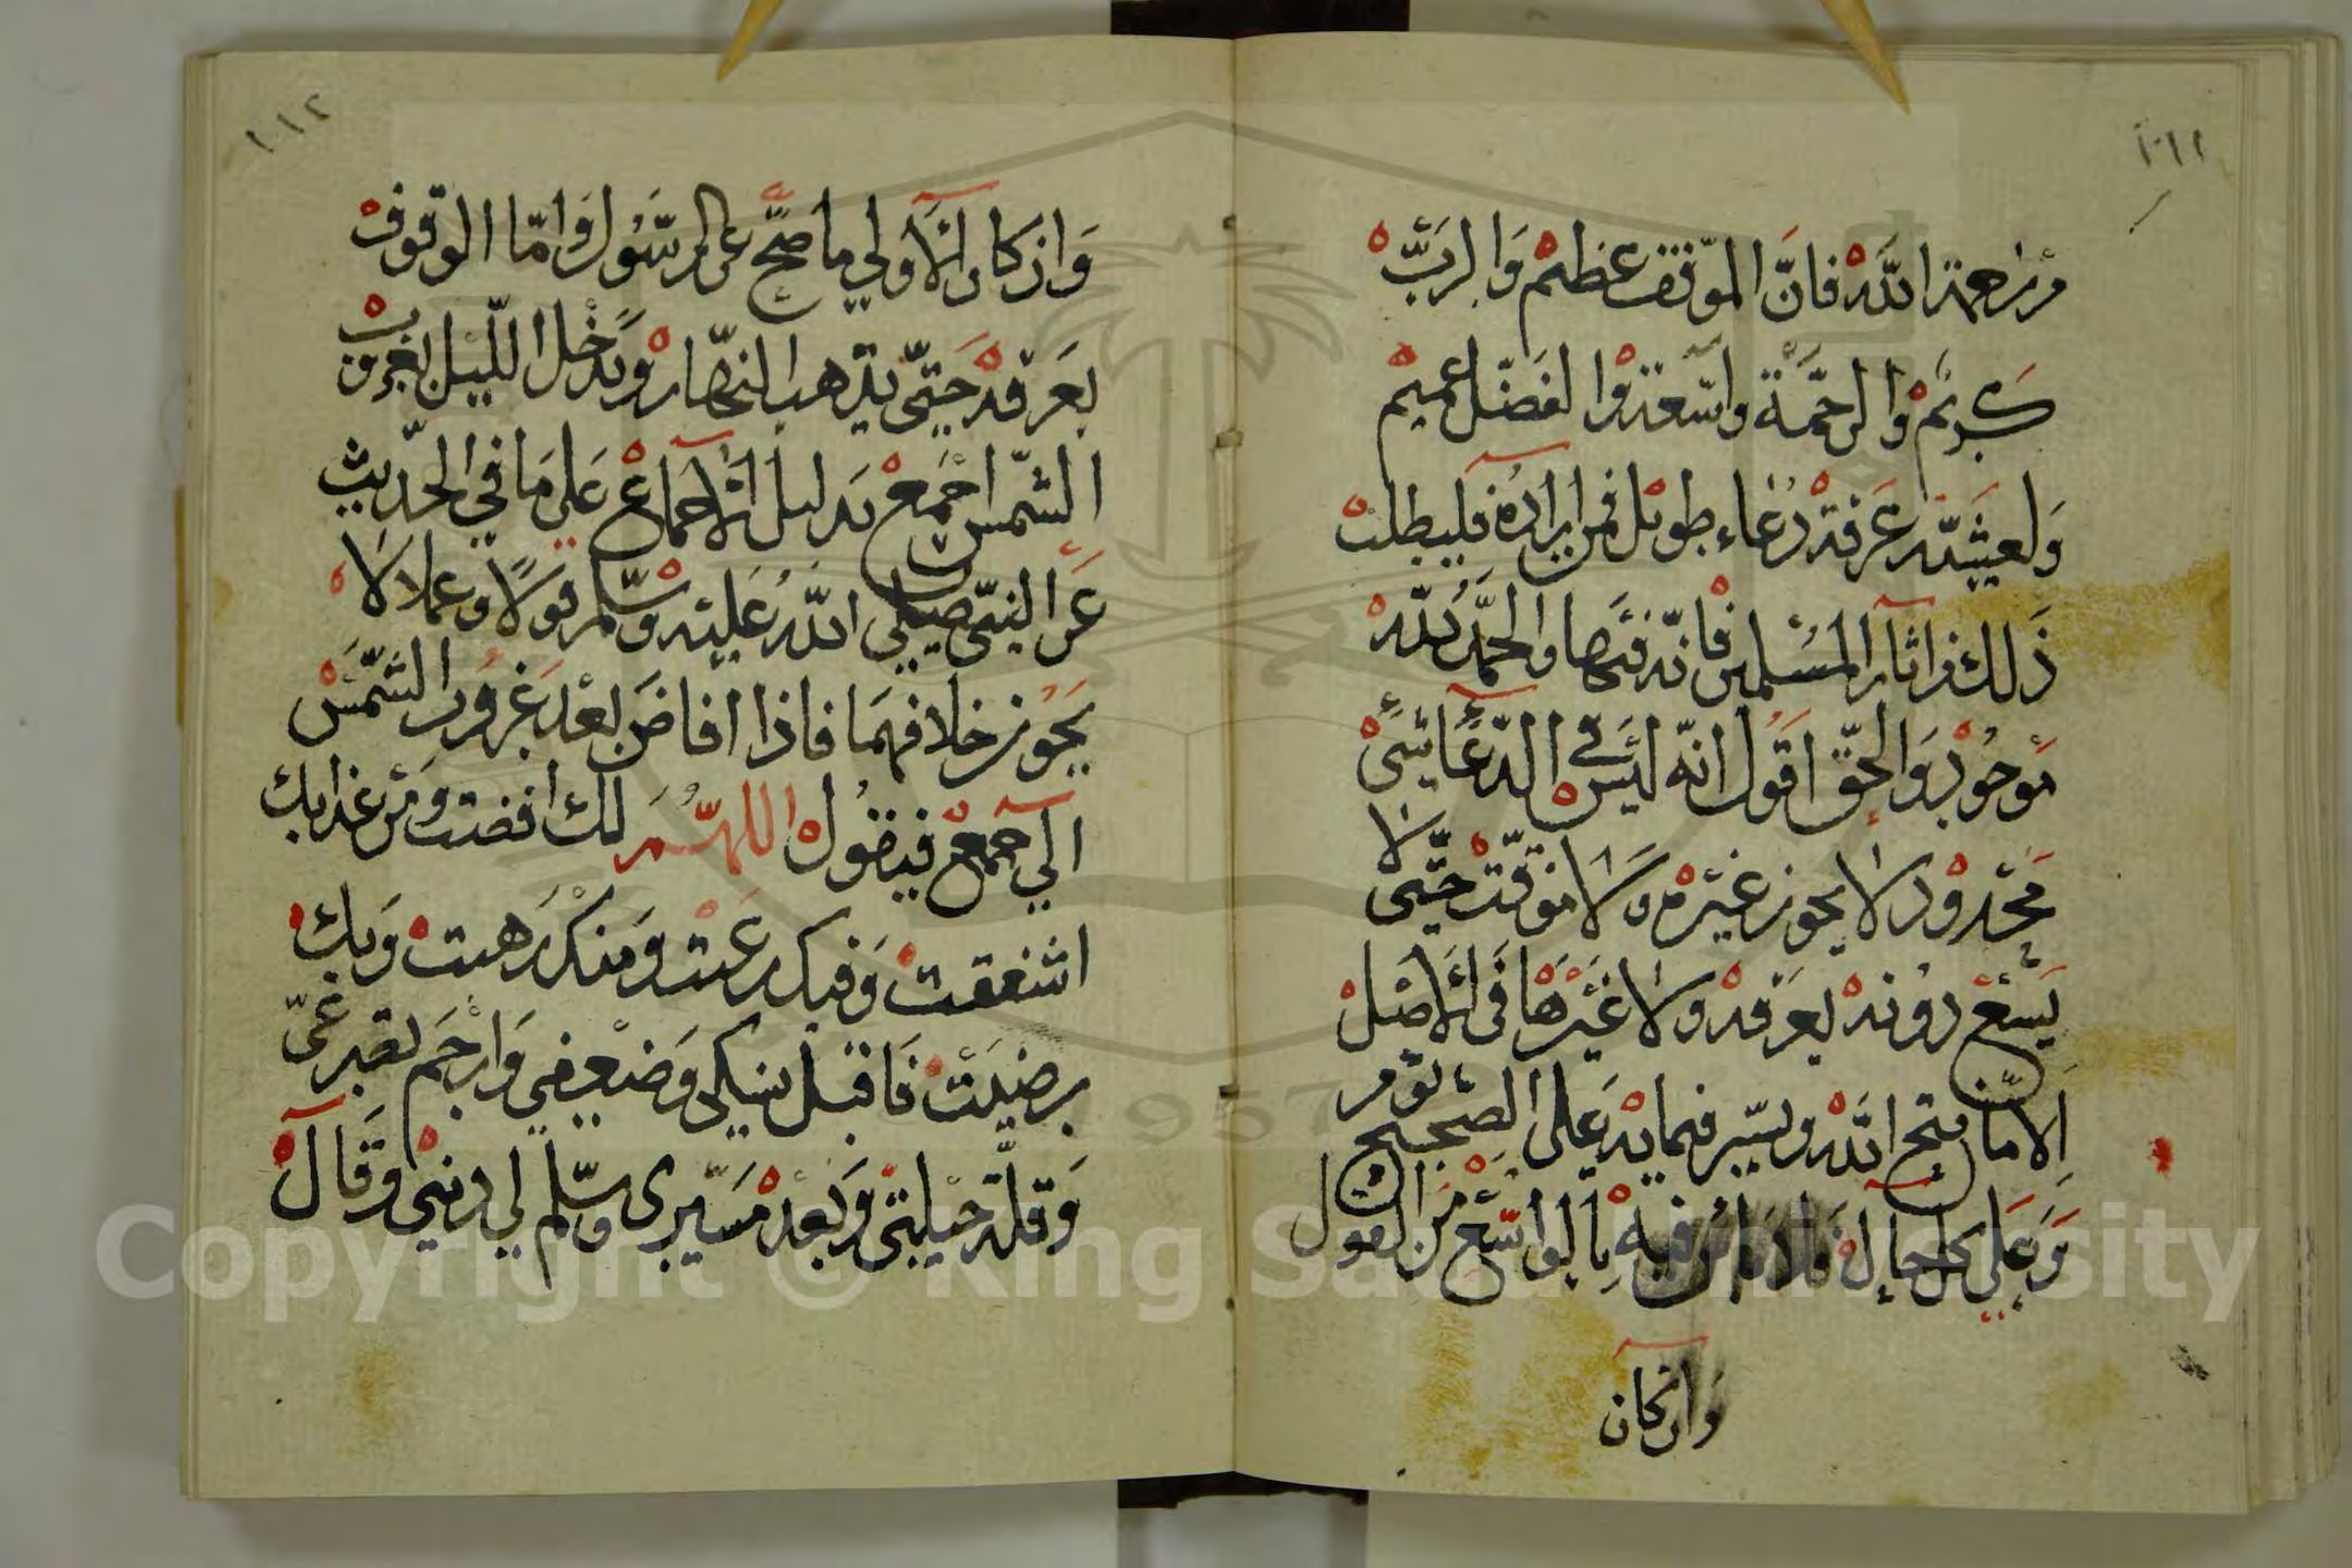 من رحمة الله فان الموقف عظيم والرب
كريم والرحمة واسعة والفضل عميم
ولعشية عرفة دعاء طويل فمن اراده فليطلب
ذلك من اثار المسلمين فانه فيها والحمد لله
موجود والحق اقول انه ليس في الدعاء شيء
محدود لا يجوز غيره ولا موقت حتى لا
يسع دونه بعرفه ولا غيرها في الاصل
الا ما فتح الله ويسر فما به على الصحيح لوم
وعلى كل حال فلا باس فيه بالواسع من القول
وان كان
وان كان الاولى ما صح عن الرسول واما الوقوف
بعرفه حتى يذهب النهار ويدخل الليل بغروب
الشمس اجمع بدليل الاجماع على ما في الحديث
عن النبي صلى الله عليه وسلم قولا وعملا لا
يجوز خلافهما فاذا افاض بعد غروب الشمس
الى جمع فيقول اللهم لك افضت ومن عذابك
اشفقت وفيك رغبت ومنك رهبت وبك
رضيت فاقبل نسكي وضعفي وارحم تضرعي
وقلة حيلتي وبعد مسيري وسلم لي ديني وقال
Copyright © King Saud University
1957